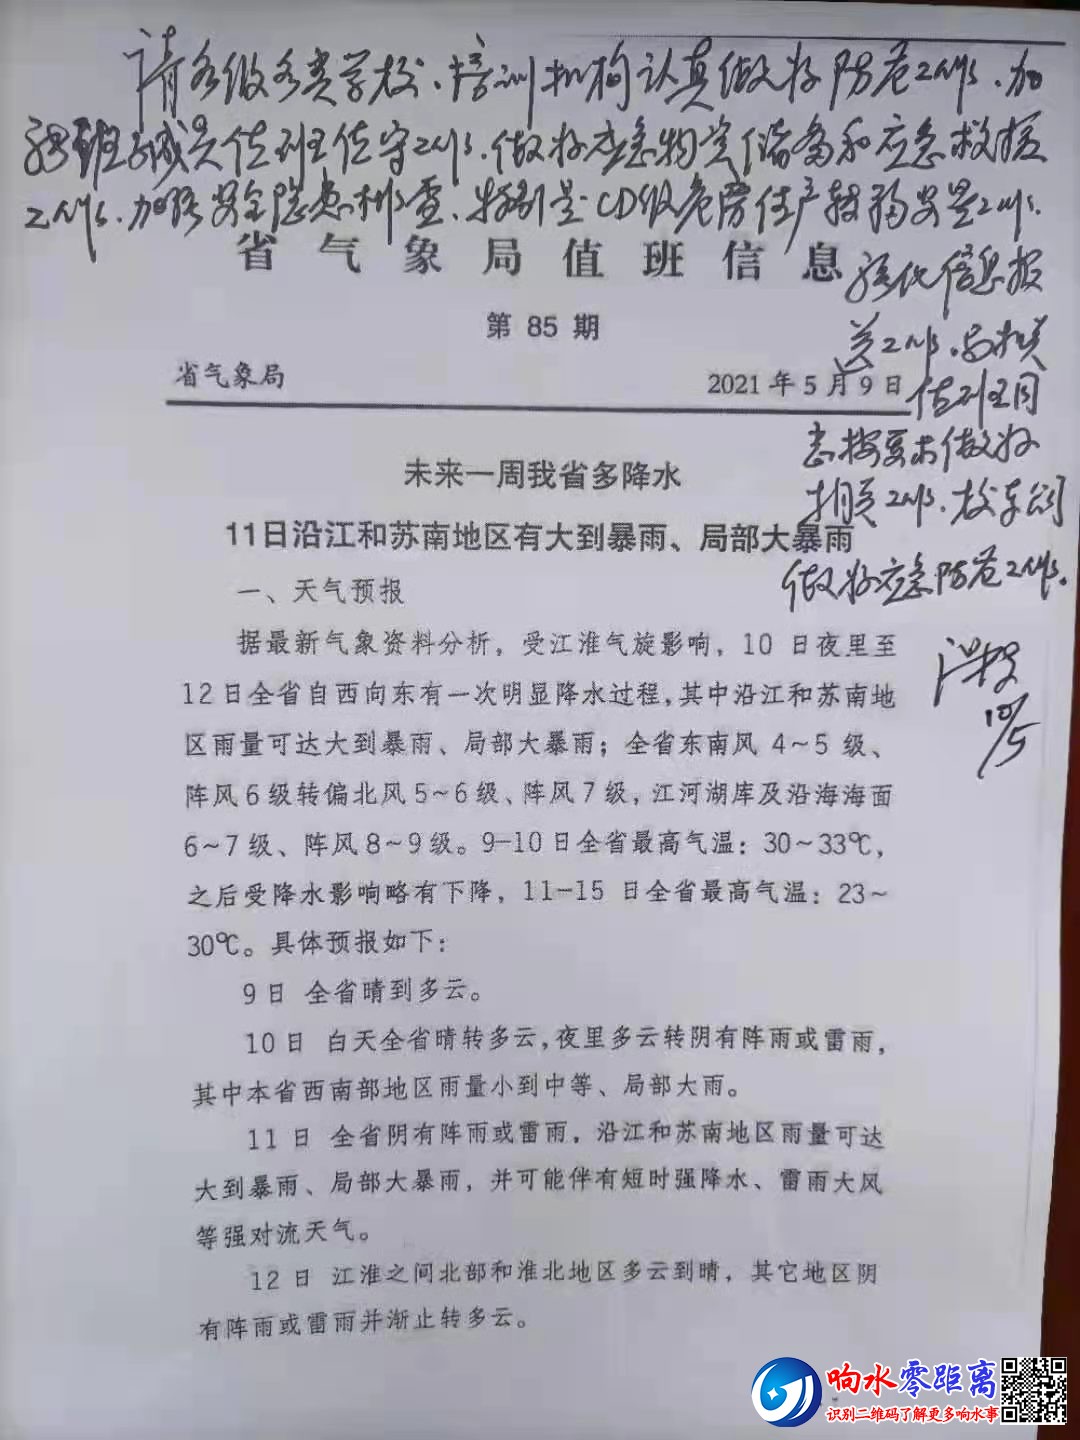 请各级各类学校、培训机构认真做好防范工作、加
强班子成员值班值守工作、做好应急物资储备和应急救援
工作、加强安全隐患排查、特别是CD级危房住户转移安置工作、
强化信息报
送工作、与相关
值班同
志按要求做好
相关工作、校车公司
做好应急防范工作。
10/5
省气象局值班信息
第 85 期
省气象局
2021年5月9日
未来一周我省多降水
11日沿江和苏南地区有大到暴雨、局部大暴雨
一、天气预报
据最新气象资料分析，受江淮气旋影响，10 日夜里至
12日全省自西向东有一次明显降水过程,其中沿江和苏南地
区雨量可达大到暴雨、局部大暴雨；全省东南风 4~5 级、
阵风6级转偏北风5~6级、阵风7级，江河湖库及沿海海面
6~7级、阵风8~9级。9-10日全省最高气温：30~33℃，
之后受降水影响略有下降，11-15 日全省最高气温：23~
30℃。具体预报如下：
9日 全省晴到多云。
10日 白天全省晴转多云,夜里多云转阴有阵雨或雷雨，
其中本省西南部地区雨量小到中等、局部大雨。
11日 全省阴有阵雨或雷雨，沿江和苏南地区雨量可达
大到暴雨、局部大暴雨，并可能伴有短时强降水、雷雨大风
等强对流天气。
12日 江淮之间北部和淮北地区多云到晴，其它地区阴
有阵雨或雷雨并渐止转多云。
响水零距离
识别二维码了解更多响水事